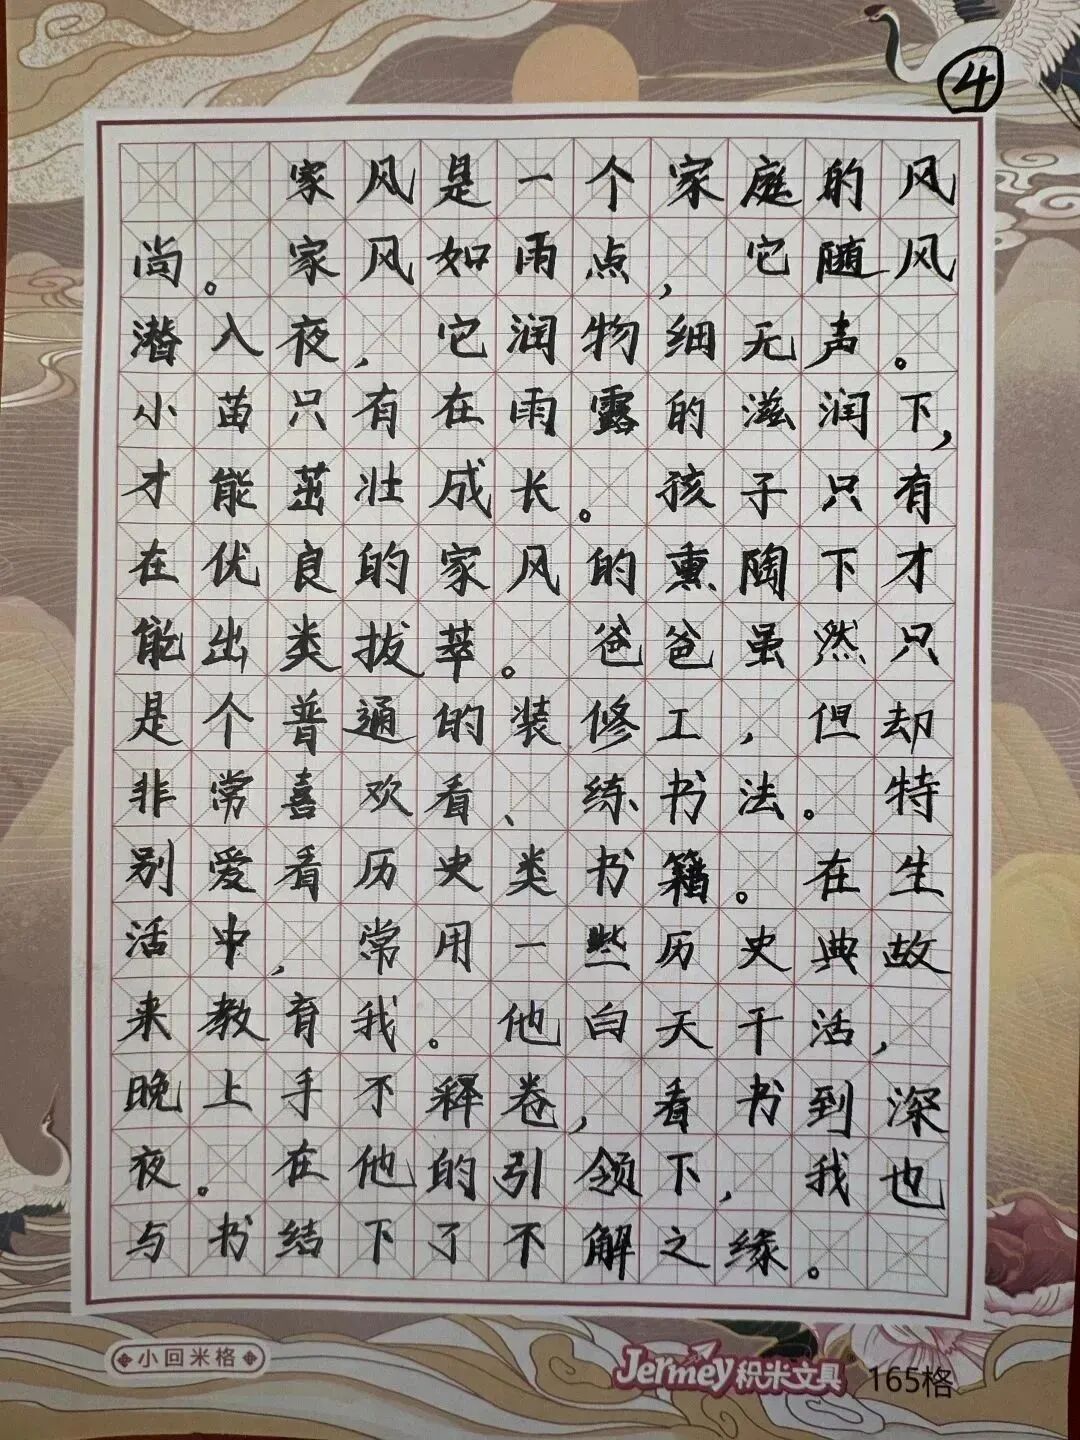 ④
家风是一个家庭的风
尚。家风如雨点，它随风
潜入夜，它润物细无声。
小苗只有在雨露的滋润下，
才能茁壮成长。孩子只有
在优良的家风的熏陶下才
能出类拔萃。爸爸虽然只
是个普通的装修工，但却
非常喜欢看、练书法。特
别爱看历史类书籍。在生
活中，常用一些历史典故
来教育我。他白天干活，
晚上手不释卷，看书到深
夜。在他的引领下，我也
与书结下了不解之缘。
小回米格
Jermey积米文具
165格